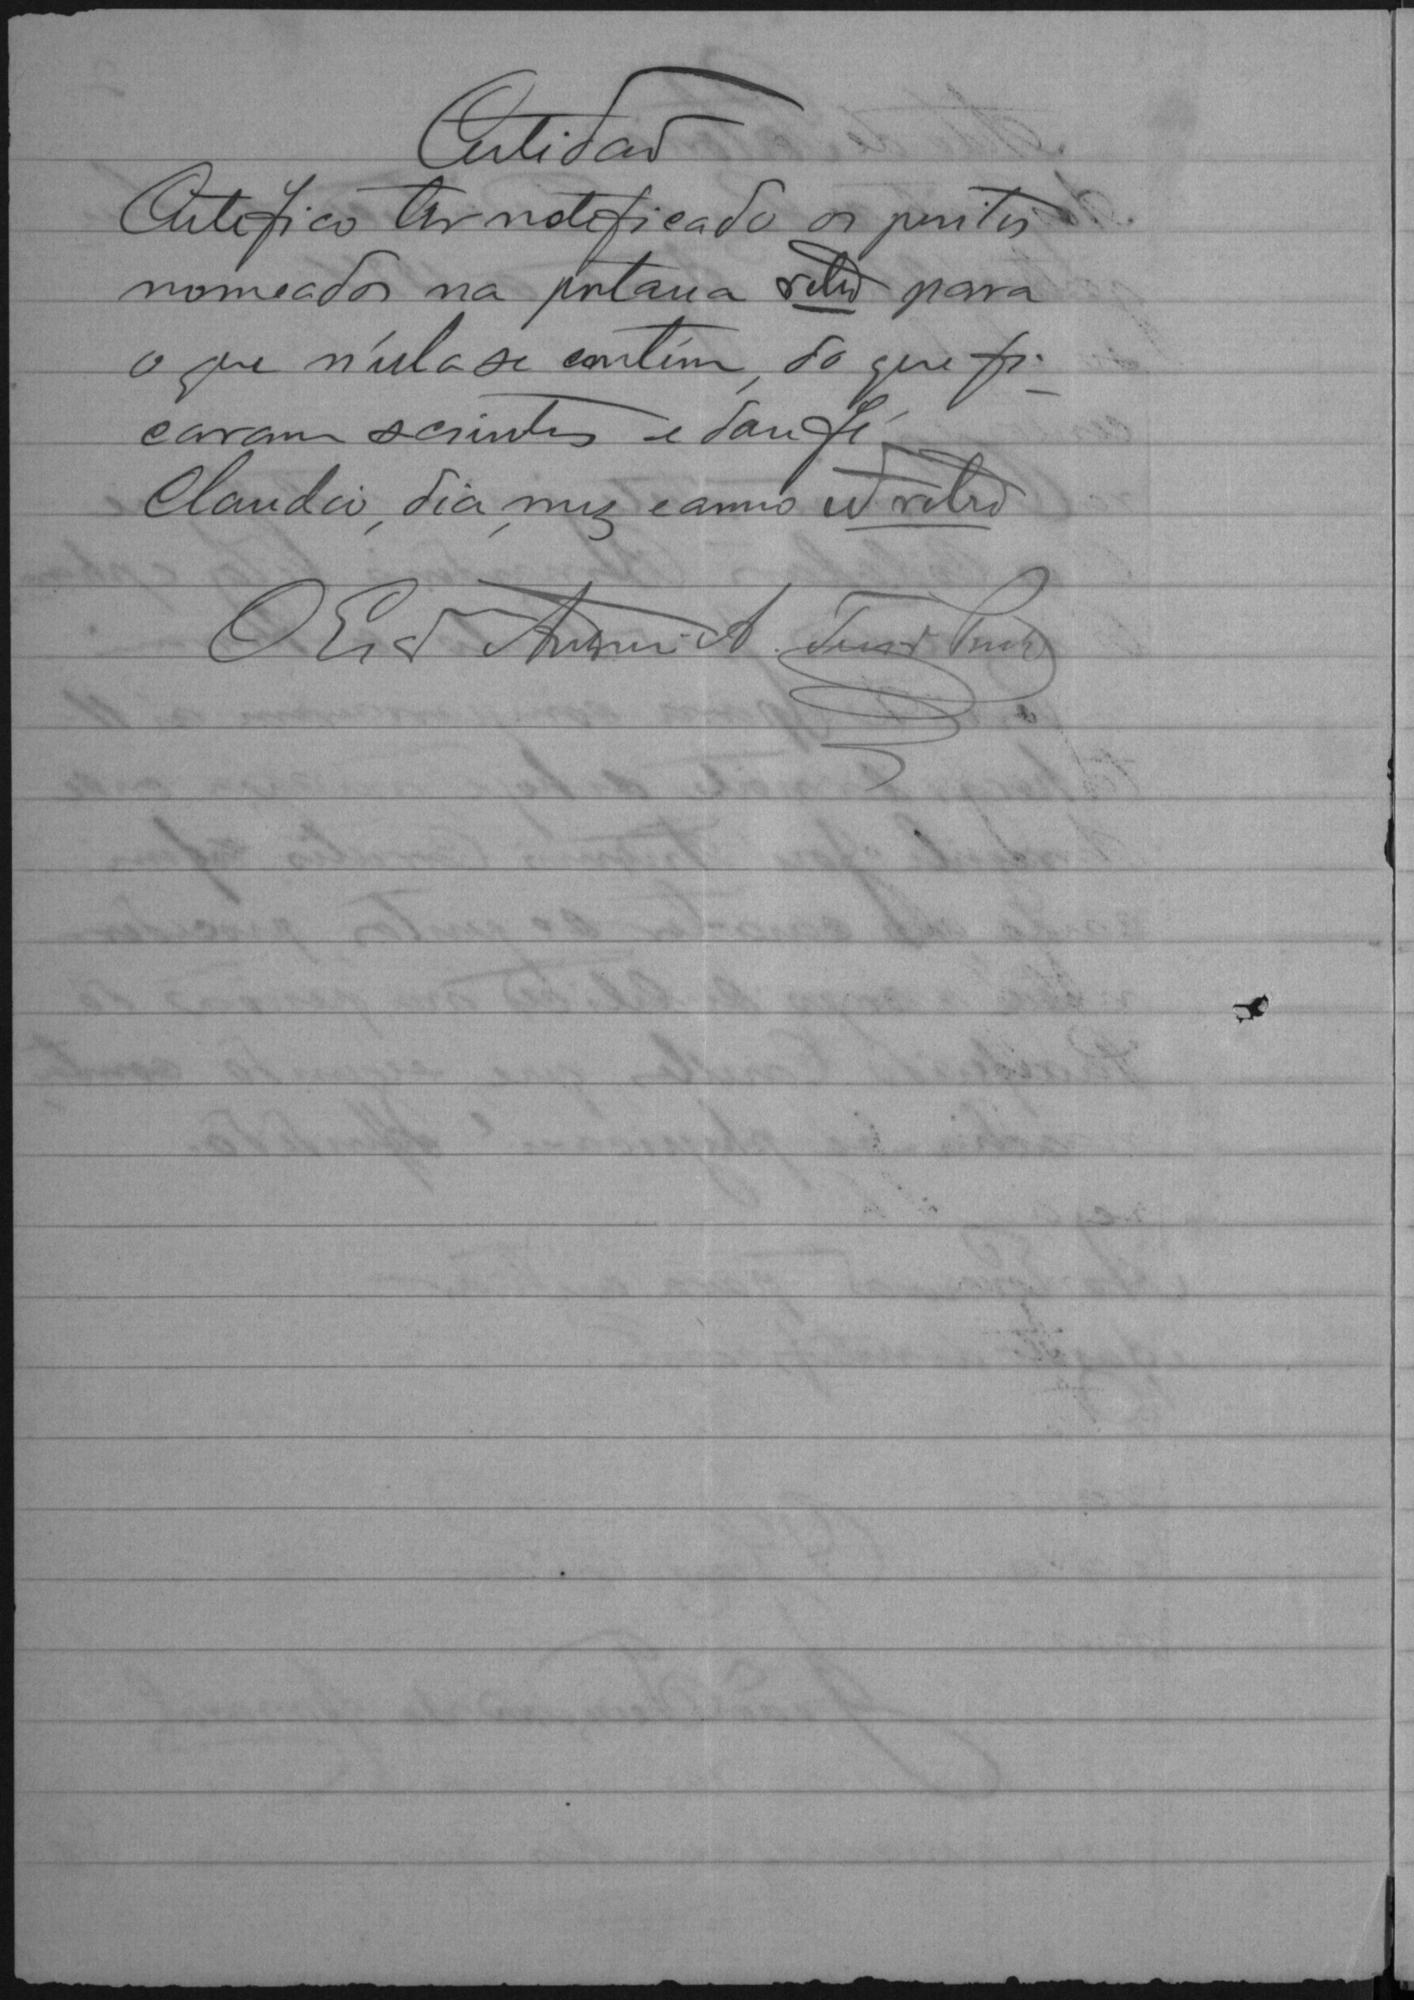 Certidaõ
Certifico ter notificado os peritos
nomeados na portaria retro para
o que n'ella se contém, do que fi-
caram scientes e dou fé.
Claudio, dia, mez e anno ut retro
O Esc.am Antonio A.